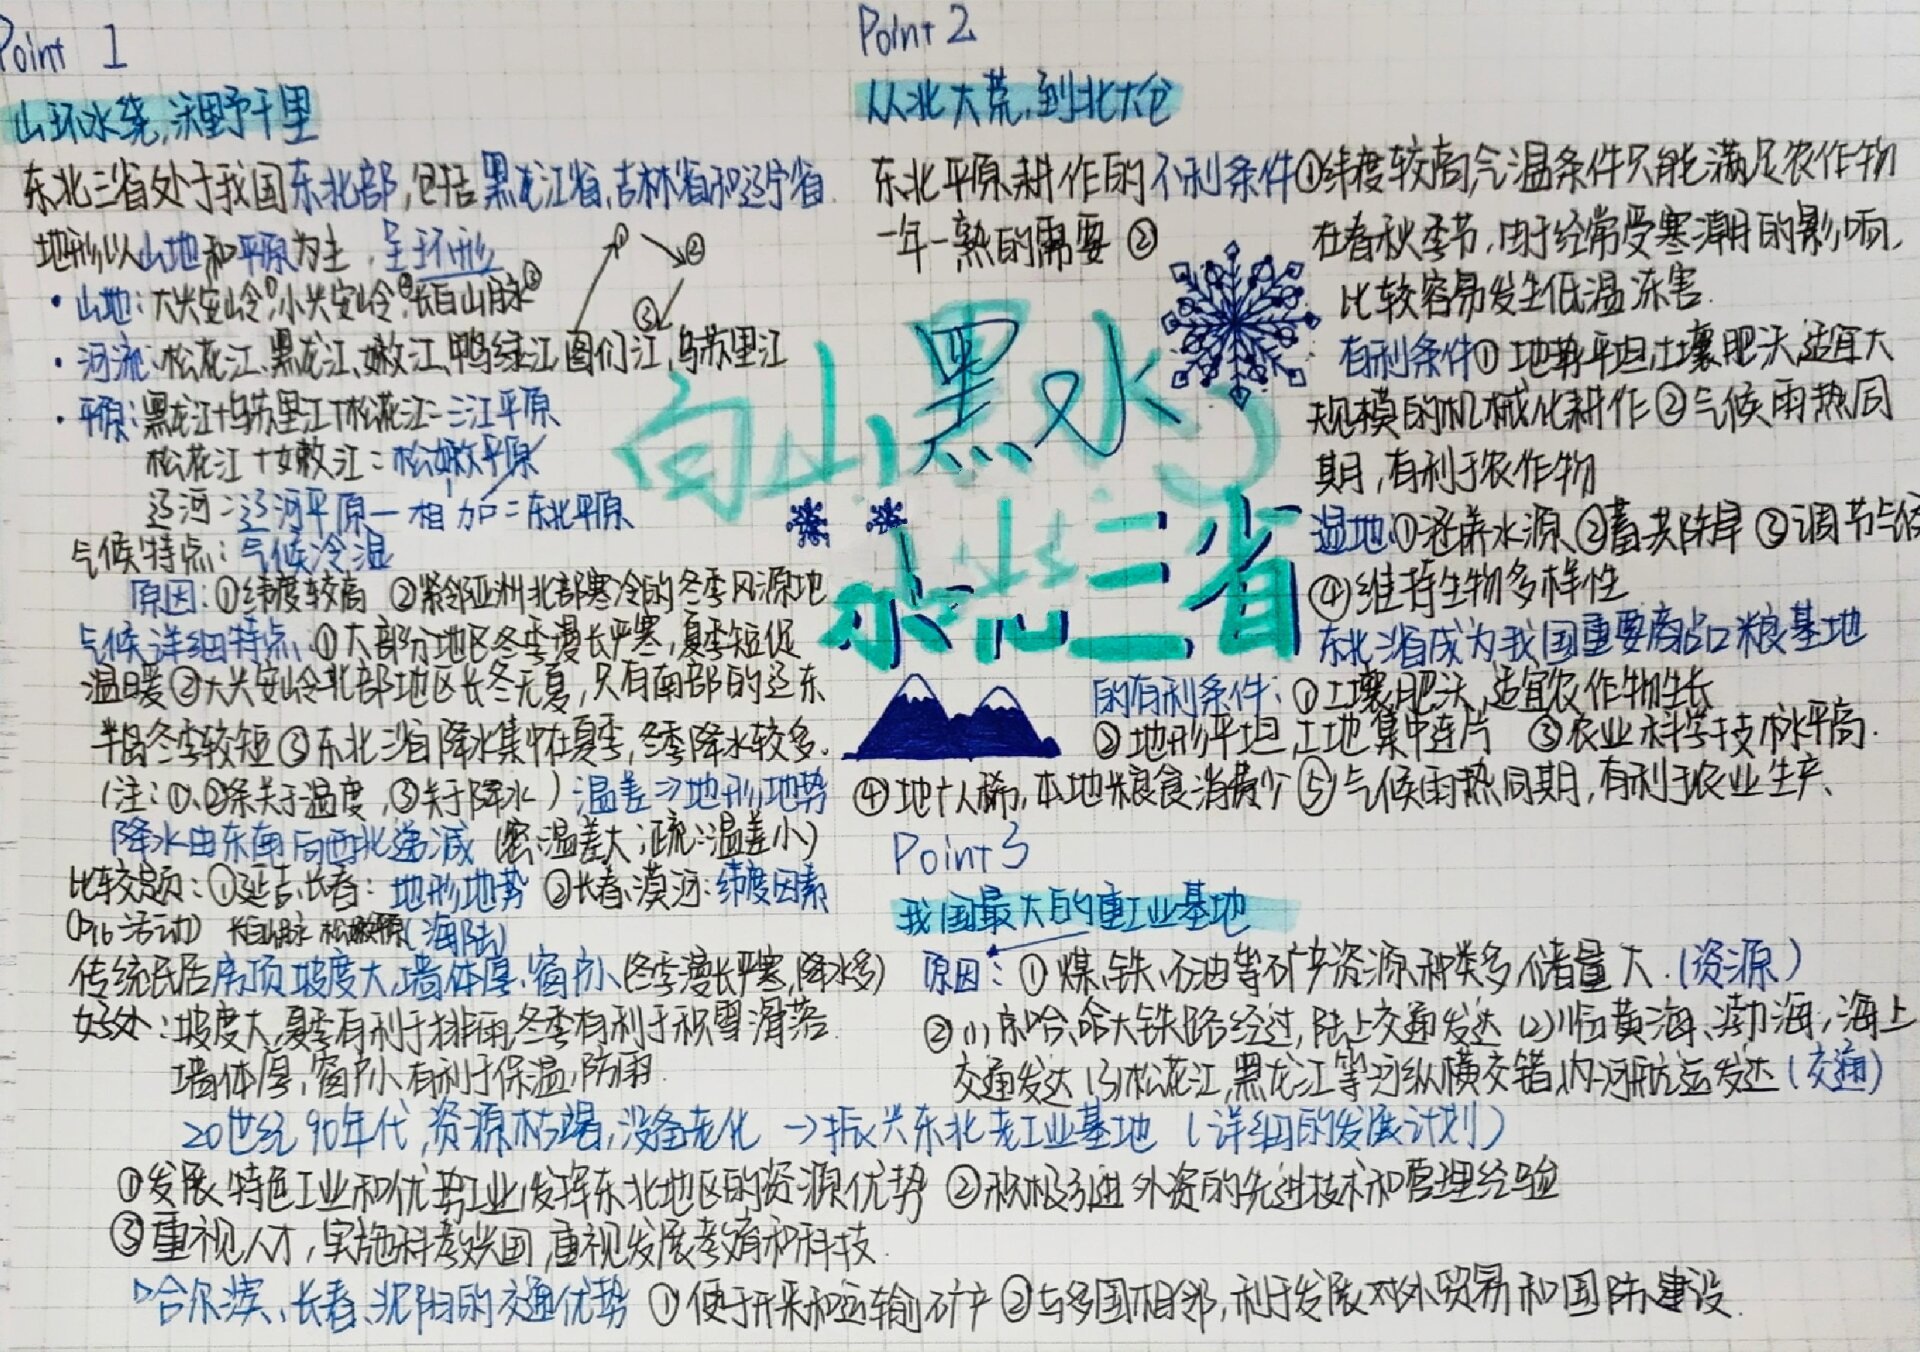 Point 1
山环水绕,沃野千里
东北三省处于我国东北部,包括黑龙江省,吉林省和辽宁省.
地形以山地和平原为主,呈环形
① → ② ③
·山地:大兴安岭①,小兴安岭②,长白山脉③
·河流:松花江、黑龙江、嫩江、鸭绿江、图们江,乌苏里江
·平原:黑龙江+乌苏里江+松花江=三江平原
松花江+嫩江=松嫩平原
辽河=辽河平原—相加=东北平原
气候特点:气候冷湿
原因:①纬度较高 ②紧邻亚洲北部寒冷的冬季风源地
气候详细特点 ①大部分地区冬季漫长严寒,夏季短促
温暖②大兴安岭北部地区长冬无夏,只有南部的辽东
半岛冬季较短③东北三省降水集中在夏季,冬季降水较多.
(注:①、②条关于温度,③关于降水)温差→地形地势
降水由东南向西北递减(密:温差大;疏:温差小)
比较题:①延吉、长春:地形地势 ②长春、漠河:纬度因素
(P16活动) 长白山脉 松嫩平原(海陆)
传统民居房顶坡度大,墙体厚、窗户小(冬季漫长严寒,降水多)
好处:坡度大,夏季有利于排雨,冬季有利于积雪滑落.
墙体厚,窗户小,有利于保温,防雨.
Point 2
从北大荒,到北大仓
东北平原耕作的不利条件①纬度较高,气温条件只能满足农作物
一年一熟的需要 ②在春秋季节,由于经常受寒潮的影响,
比较容易发生低温冻害.
有利条件①地势平坦,土壤肥沃,适宜大
规模的机械化耕作②气候雨热同
期,有利于农作物
湿地:①涵养水源②蓄洪防旱③调节气候
④维持生物多样性
东北三省成为我国重要商品粮基地
的有利条件:①土壤肥沃,适宜农作物生长
②地形平坦,土地集中连片 ③农业科学技术水平高.
④地广人稀,本地粮食消费少⑤气候雨热同期,有利于农业生产、
白山黑水
东北三省
Point 3
我国最大的重工业基地
原因:①煤、铁、石油等矿产资源种类多,储量大.(资源)
②(1)京哈、哈大铁路经过,陆上交通发达(2)临黄海、渤海,海上
交通发达(3)松花江,黑龙江等河纵横交错,内河航运发达(交通)
20世纪90年代,资源枯竭,设备老化→振兴东北老工业基地(详细的发展计划)
①发展特色工业和优势工业,发挥东北地区的资源优势 ②积极引进外资的先进技术和管理经验
③重视人才,实施科教兴国,重视发展教育和科技.
哈尔滨、长春、沈阳的交通优势 ①便于开采和运输矿产②与多国相邻,利于发展对外贸易和国际建设.